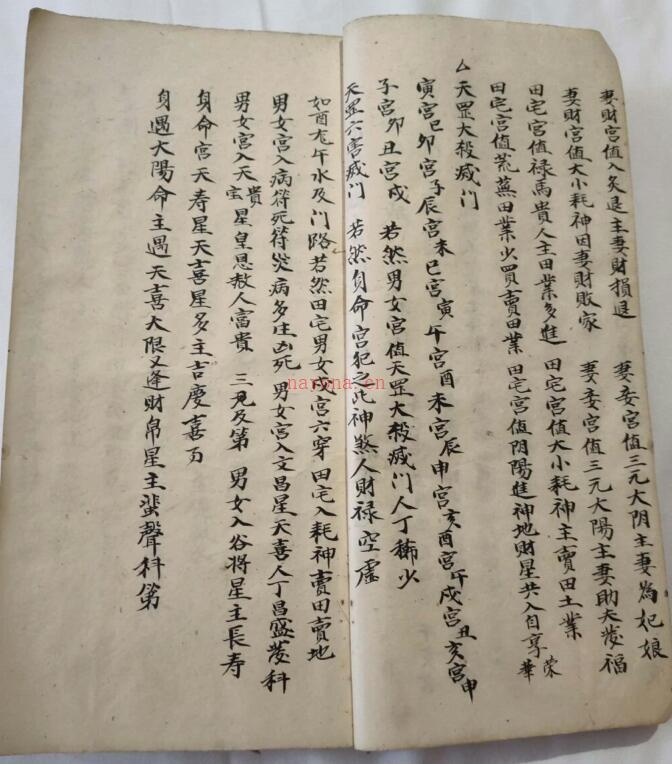 妻財宮值入炙退主妻財損退 妻妾宮值三元大阴主妻為妃娘
妻財宮值大小耗神因妻財敗家 妻妾宮值三元大陽主妻助夫发福
田宅宮值禄馬貴人主田業多進 田宅宮值大小耗神主賣田土業
田宅宮值荒蕪田業少買賣田業 田宅宮值阴陽進神地財星共入自享榮華
厶天罡大殺滅门
寅宮巳卯宮子辰宮未巳宮寅午宮酉未宮辰申宮亥酉宮午戌宮丑亥宮申
子宮卯丑宮戌 若然男女宮值天罡大殺滅门人丁稀少
天罡六害滅门 若然身命宮犯之此神煞人財禄空虛
如酉在午水及门路若然田宅男女式宮六穿田宅入耗神賣田賣地
男女宮入病符死符災病多生凶死 男女宮入文昌星天喜人丁昌盛发科
男女宮入天貴宝星皇恩敖人富貴 三元及第 男女入谷将星主長寿
身命宮天寿星天喜星多主吉慶喜
身遇大陽命主遇天喜大限又逢財帛星主蜚聲科第
nayona.cn